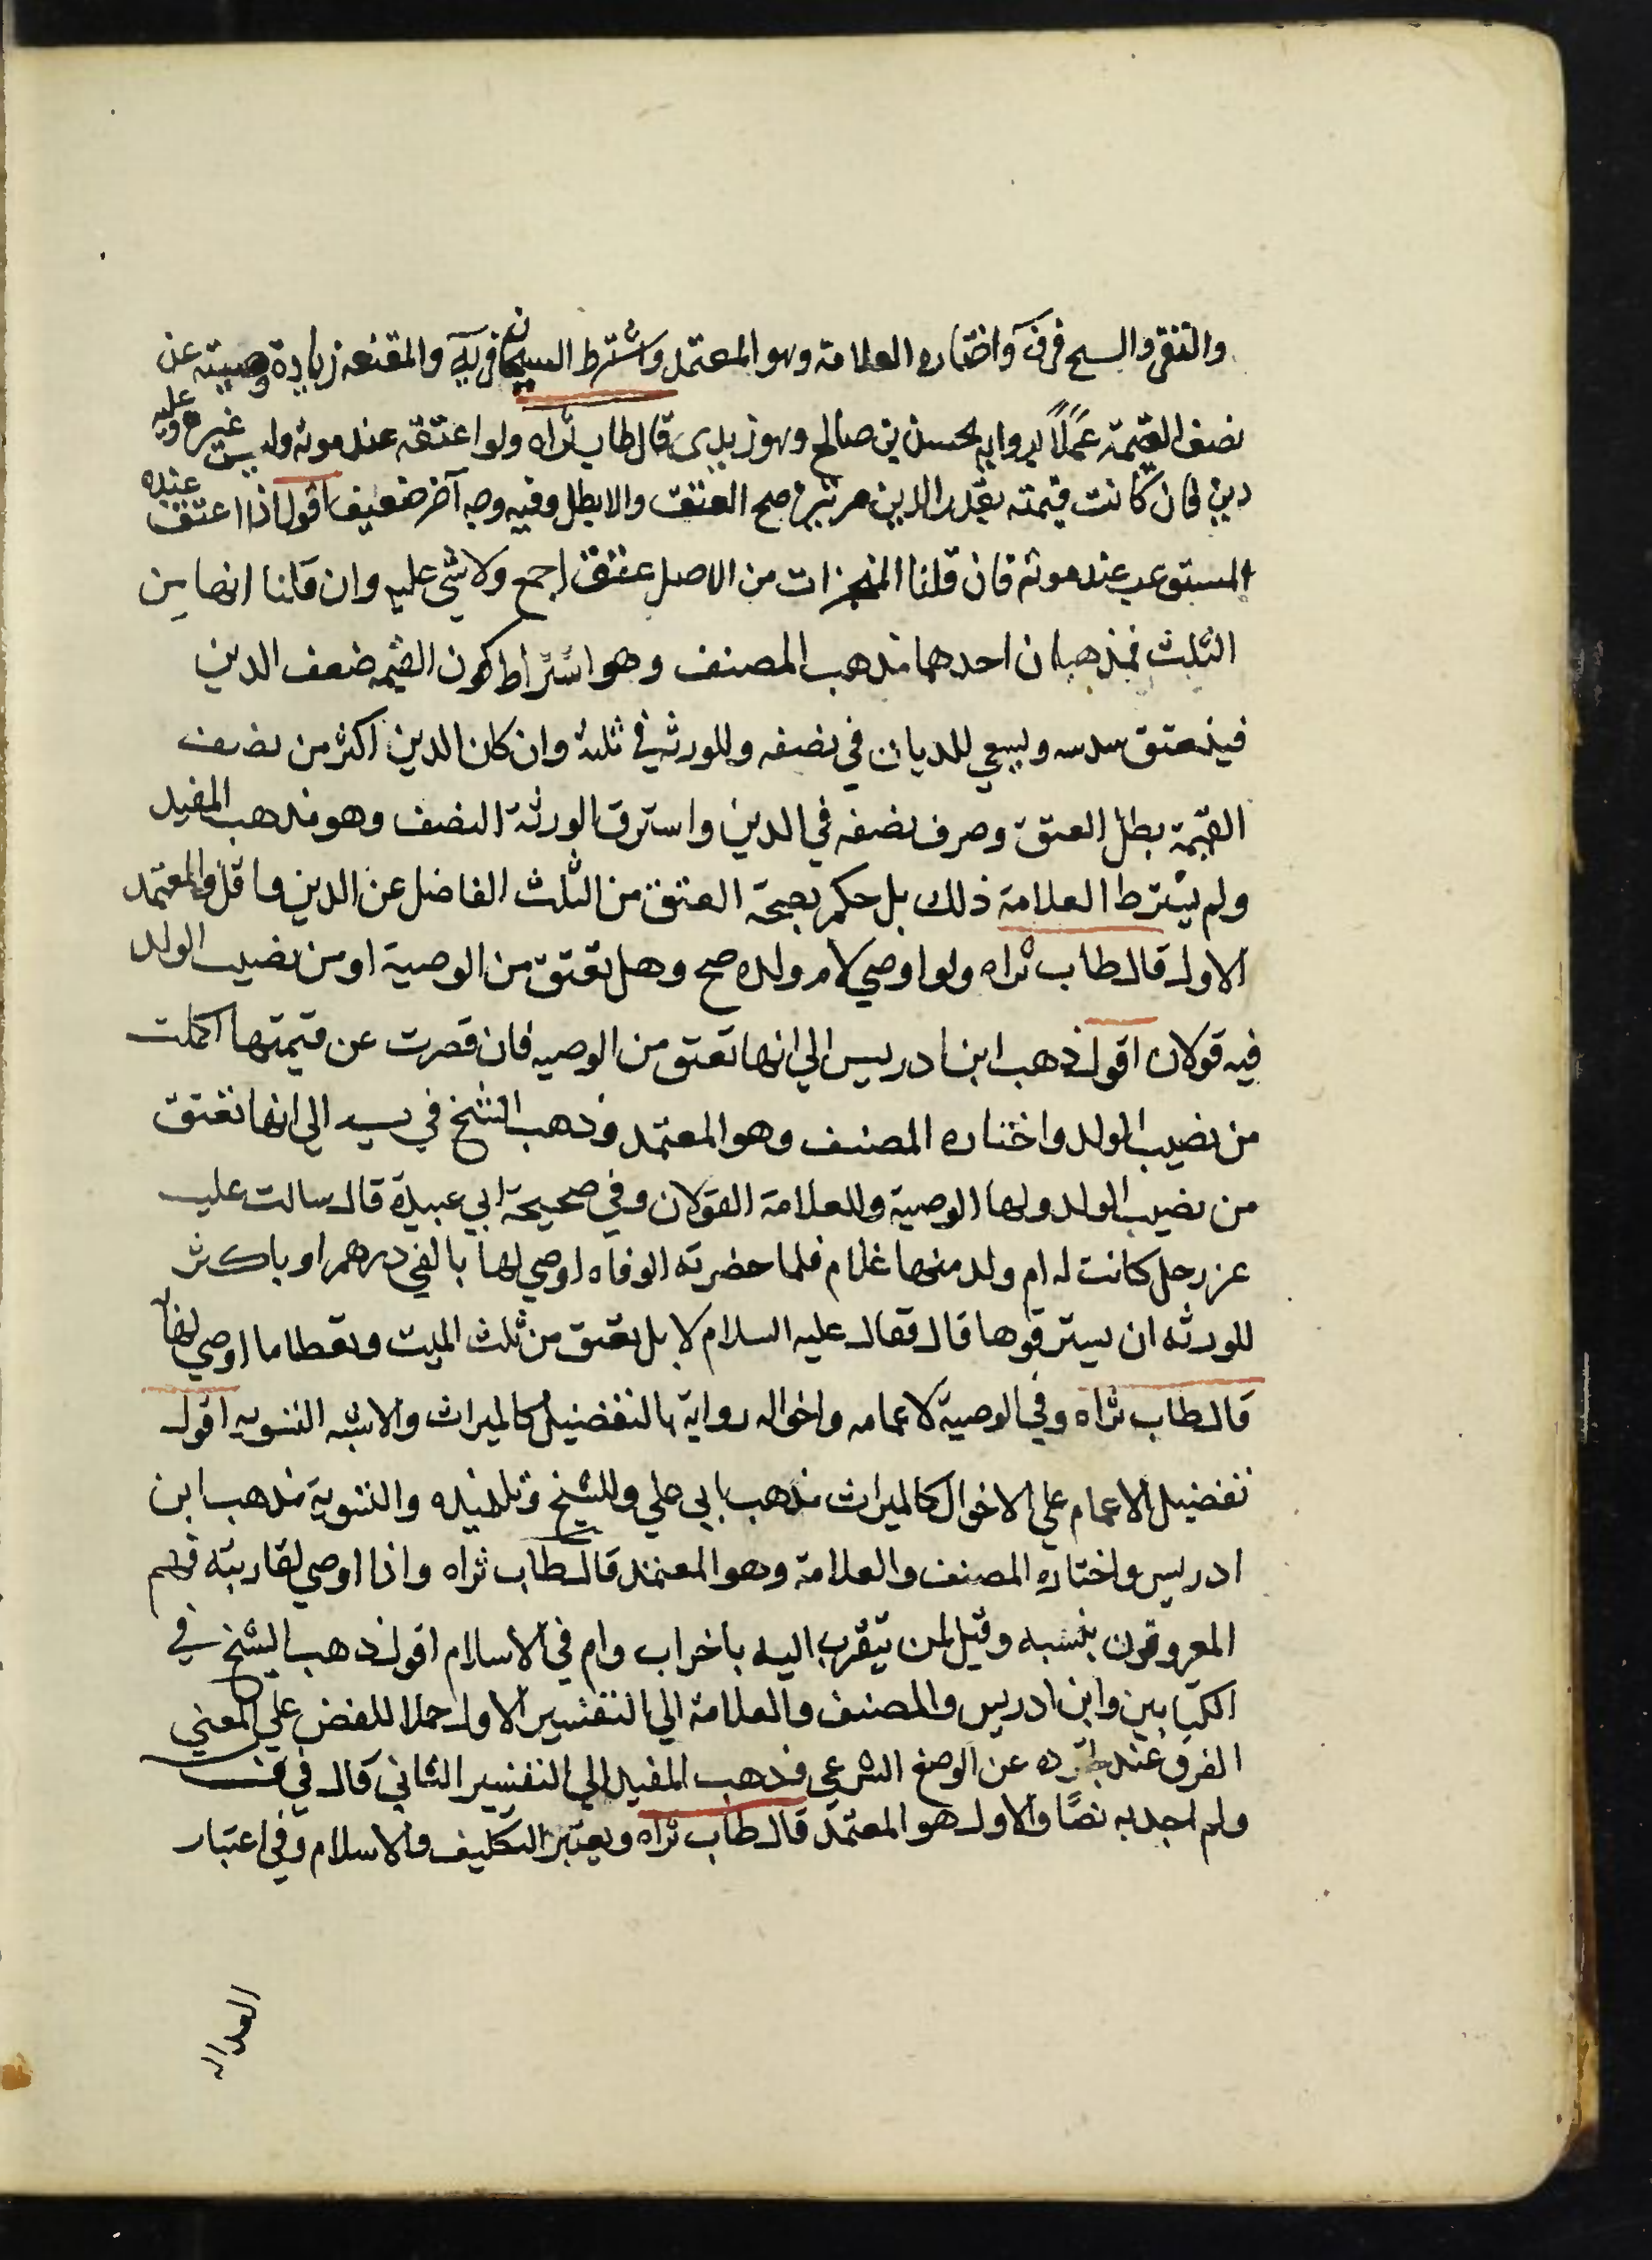 واختاره العلامة وهو المعتمد واشترط الشيخان في يه والمقنعه زيادة وصيته عن
نصف القيمة عملًا بروايه لحسن بن صالح وهو زيدى قال طاب ثراه ولو اعتقه عند موته وليس غيره وعليه
دين فان كانت قيمته بقدر الدين مرتين صح العتق والا بطل وفيه وجه آخر ضعيف اقول اذا اعتق عنده
المستوعب عند موته فان قلنا المنجزات من الاصل عتق اجمع ولا شي عليه وان قلنا انها من
الثلث فمذهبان احدهما مذهب المصنف وهو اشتراط كون القيمه ضعف الدين
فينعتق سدسه ويسعي للديان في نصفه وللورثه في ثلثه وان كان الدين اكثر من نصف
القيمة بطل العتق وصرف نصفه في الدين واسترق الورثة النصف وهو مذهب المفيد
ولم يشترط العلامة ذلك بل حكم بصحة العتق من الثلث الفاضل عن الدين ما قل والمعتمد
الاول قال طاب ثراه ولو اوصي لام ولده صح وهل تعتق من الوصية او من نصيب الولد
فيه قولان اقول ذهب ابن ادريس الي انها تعتق من الوصيه فان قصرت عن قيمتها اكملت
من نصيب الولد واختاره المصنف وهو المعتمد وذهب الشخ في يه الي انها تعتق
من نصيب الولد ولها الوصية وللعلامة القولان وفي صحيحة ابي عبيدة قال سالت عليه
عن رجل كانت له ام ولد منها غلام فلما حضرته الوفاه اوصي لها بالفي درهم او باكثر
للورثه ان يسترقوها قال فقال عليه السلام لا بل تعتق من ثلث الميت وتعطا ما اوصي لها
قال طاب ثراه وفي الوصية لاعمامه واخواله رواية بالتفضيل كالميراث والاشبه التسويه اقول
تفضيل الاعمام علي الاخوال كالميراث مذهب ابي علي والشيخ وتلميذه والتسوية مذهب ابن
ادريس واختاره المصنف والعلامة وهو المعتمد قال طاب ثراه واذا اوصي لقرابته فهم
المعروفون بنسبه وقيل لمن يتقرب اليه باخراب وام في الاسلام اقول ذهب الشخ في
الكتابين وابن ادريس والمصنف والعلامة الي التفسير الاول حملا للفض علي المعني
العرفي عند تجرده عن الوضع الشرعي وذهب المفيد الي التفسير الثاني قال في ف
ولم اجد به نصًا والاول هو المعتمد قال طاب ثراه ويعتبر التكليف والاسلام وفي اعتبار
العداله